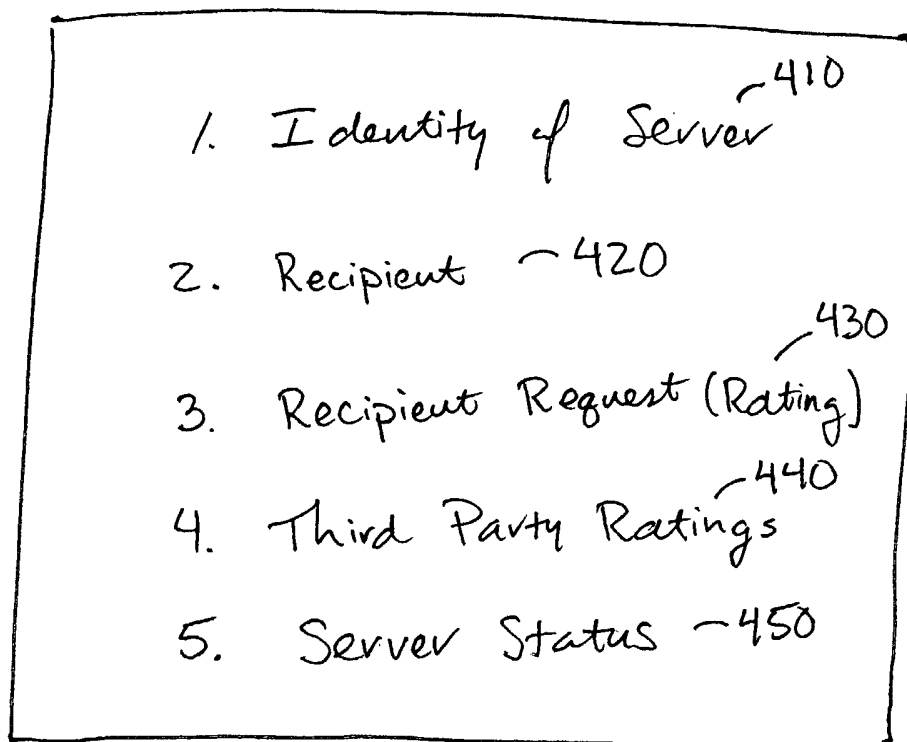 1. Identity of Server 410
2. Recipient 420
3. Recipient Request (Rating) 430
4. Third Party Ratings 440
5. Server Status 450